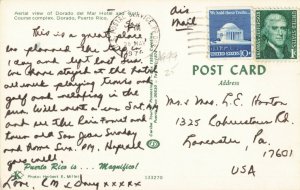 Aerial view of Dorado del Mar Hotel and Golf
Course complex. Dorado, Puerto Rico.
Air
Mail
This is a great place
we planned the trip
1 day and left last Sun
we have stayed at the hotel
all week playing tennis and
golf and relaxing in the
sun. Will rent a car Sat AM
and see the Rain Forest and
tour old San Juan Sunday
and home Sun. PM. Hope all
goes well.
Puerto Rico is... Magnifico!
Photo: Herbert K. Miller
133270
Love,
xxxxx
10c
POST CARD
Address
Mr & Mrs L. E. Horton
1325
Lancaster, Pa.
17601
USA